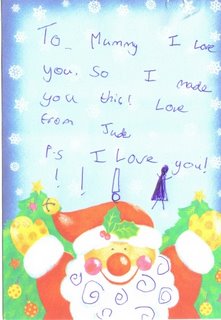 To_ Mummy I love
you. So I made
you this! Love
from Jude
P.S I Love you!
! ! !